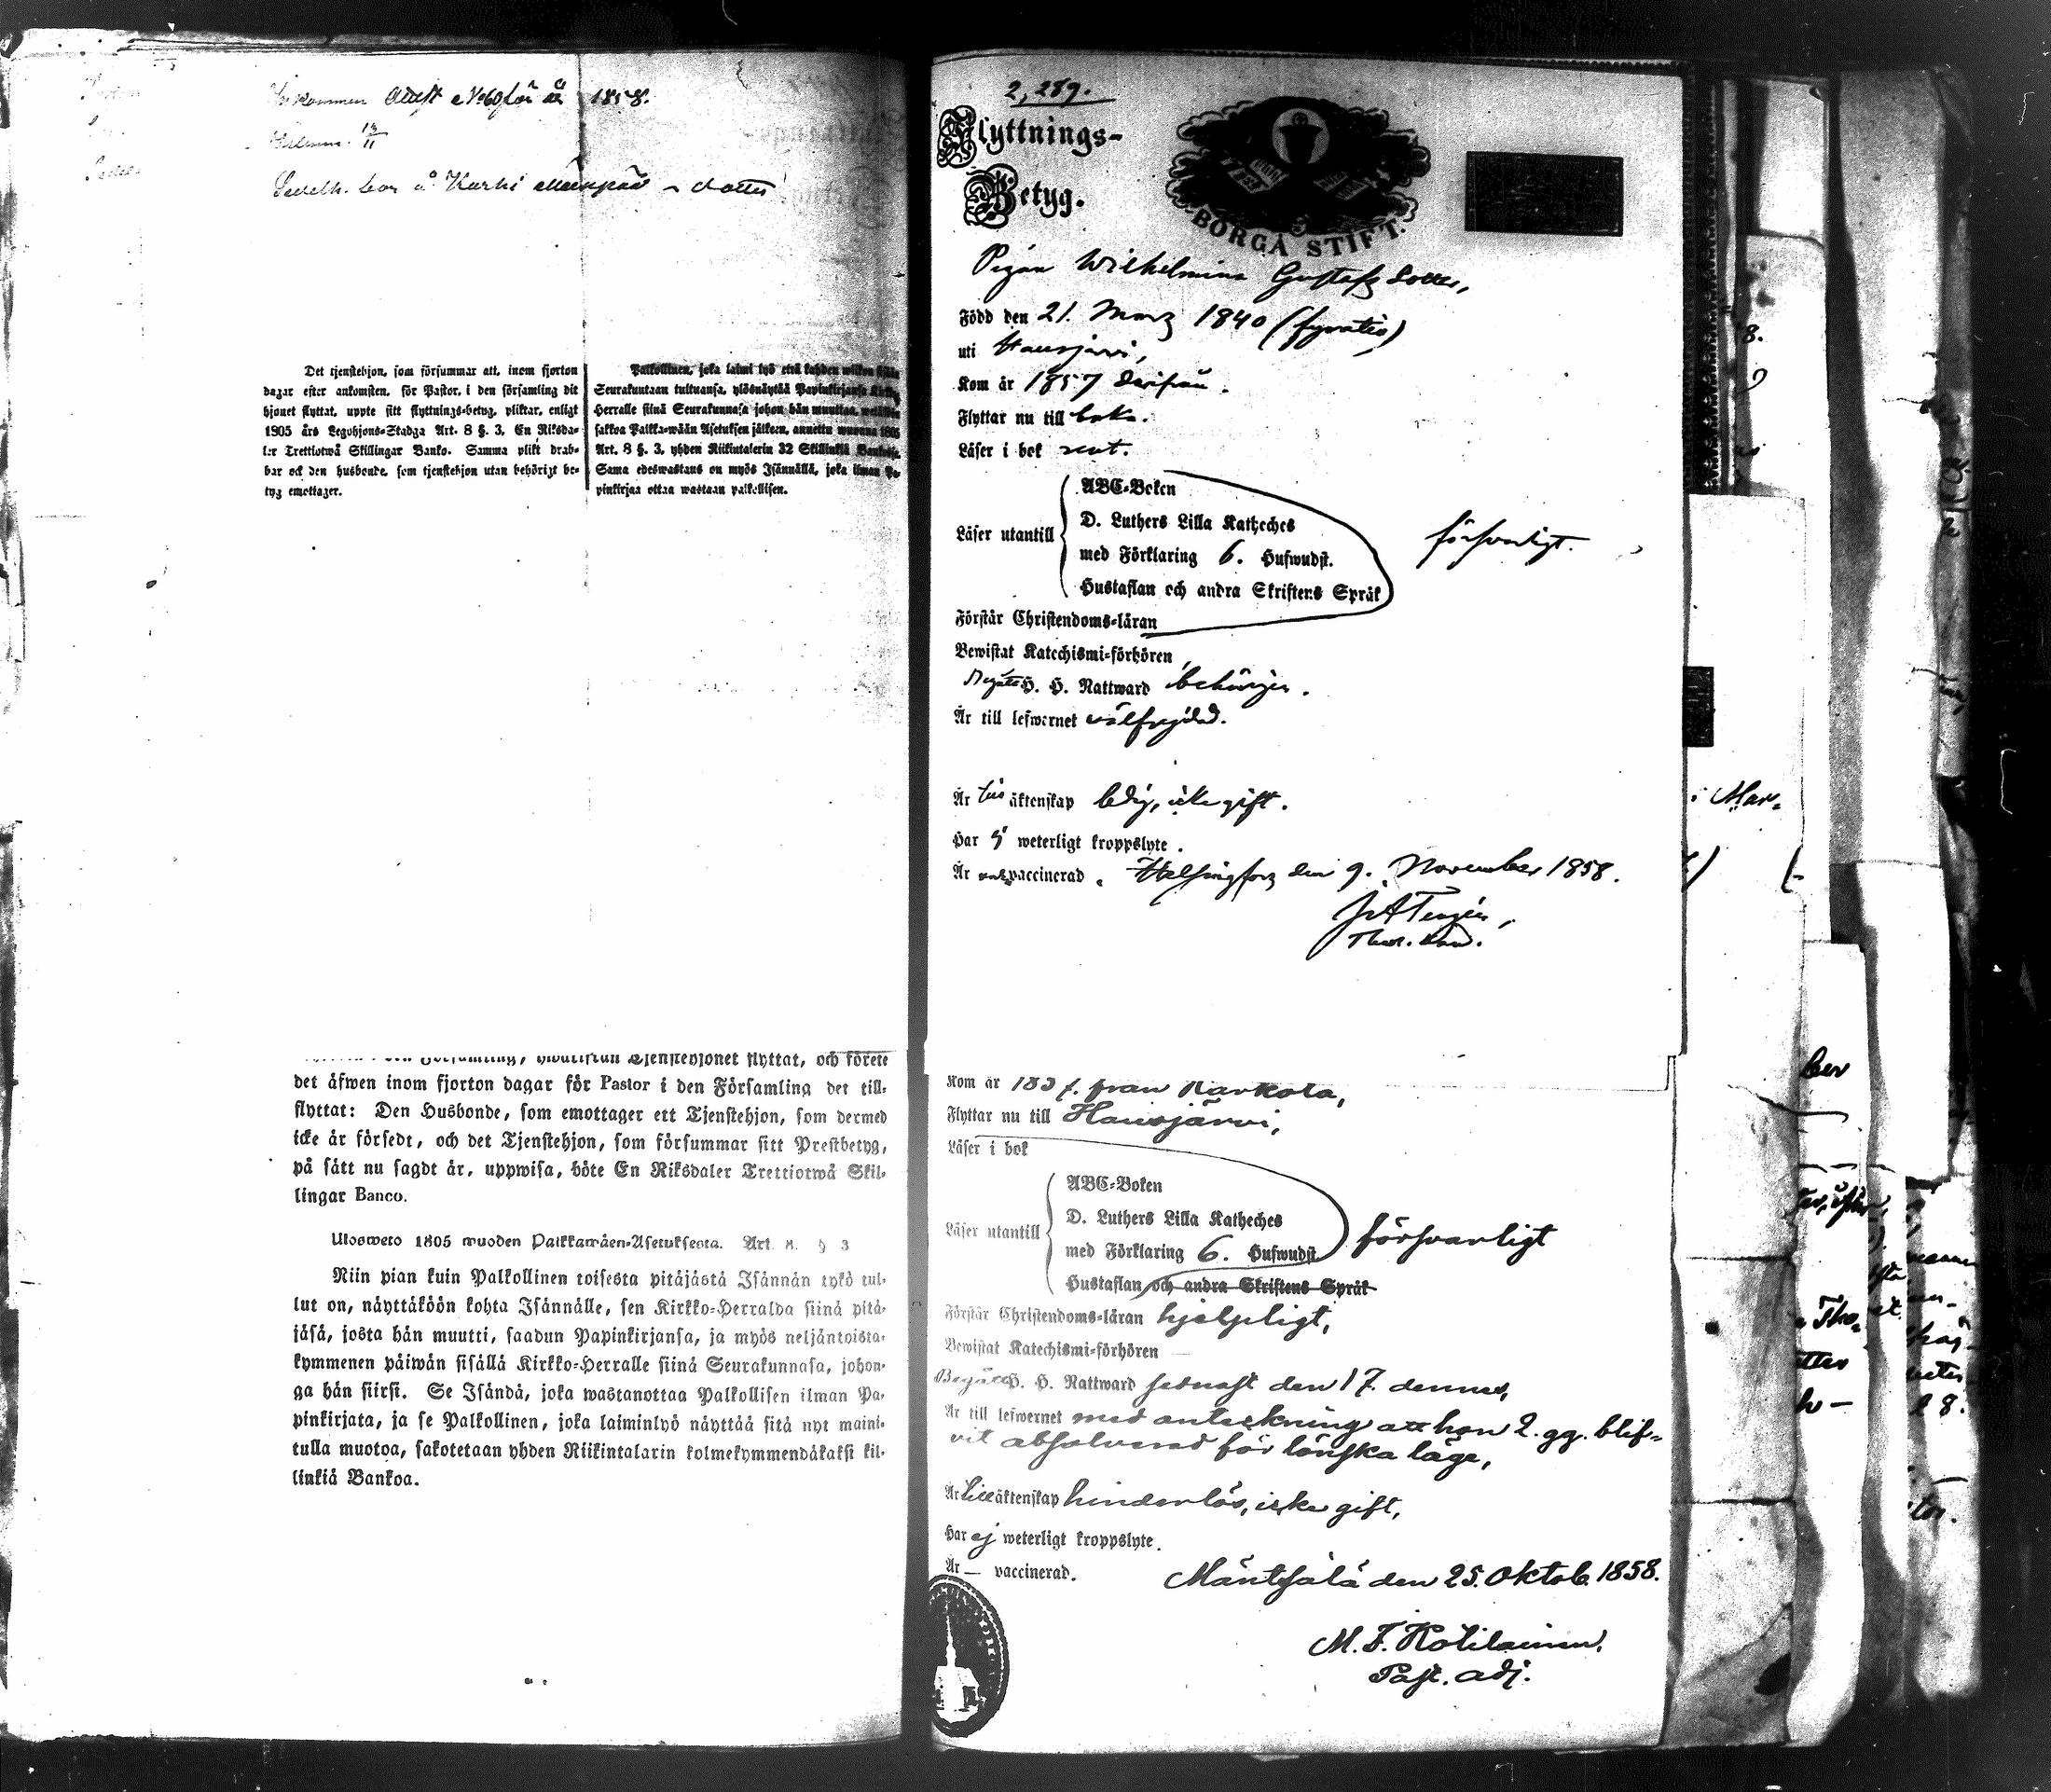 Inkommen Attest No 60 för år 1858.
Sedelh. bor å Karhi
Det tjenstehjon, som försummar att, inom fjorton
dagar efter ankomsten, för Pastor, i den församling dit
hjonet flyttat, uppte sitt flyttnings-betyg, pliktar, enligt
1805 års Legohjons-Stadga Art. 8 §. 3, En Riksda-
ler Trettiotwå Skillingar Banko. Samma plikt drab-
bar ock den husbonde, som tjenstehjon utan behörigt be-
tyg emottager.
Palkollinen, joka laimi lyö että kahden wiikon sisään
Seurakuntaan tultuansa, ylösnäyttää Papinkirjansa Kirkko
Herralle siinä Seurakunnasa johon hän muuttaa, wetäköön
sakkoa Palkka-wään Asetuksen jälkeen, annettu wuonna 1805
Art. 8 §. 3, yhden Riikintalerin 32 Skillinkiä Bankossa.
Sama edeswastaus on myös Isännällä, joka ilman Pa-
pinkirjaa ottaa wastaan palkollisen.
det äfwen inom fjorton dagar för Pastor i den Församling det till-
flyttat: Den Husbonde, som emottager ett Tjenstehjon, som dermed
icke är försedt, och det Tjenstehjon, som försummar sitt Prestbetyg,
på sätt nu sagdt är, uppwisa, böte En Riksdaler Trettiotwå Skil-
lingar Banco.
Ulosweto 1805 wuoden Palkkawäen-Asetuksesta. Art. 8. § 3
Niin pian kuin Palkollinen toisesta pitäjästä Isännän tykö tul-
lut on, näyttäköön kohta Isännälle, sen Kirkko-Herralda siinä pitä-
jäsä, josta hän muutti, saadun Papinkirjansa, ja myös neljäntoista-
kymmenen päiwän sisällä Kirkko-Herralle siinä Seurakunnasa, johon-
ga hän siirsi. Se Isändä, joka wastanottaa Palkollisen ilman Pa-
pinkirjata, ja se Palkollinen, joka laiminlyö näyttää sitä nyt maini-
tulla muotoa, sakotetaan yhden Riikintalarin kolmekymmendäkaksi kil-
linkiä Bankoa.
2,289.
Flyttnings-
Betyg.
BORGÅ STIFT.
Pigan Wilhelmina Gustafsdotter,
Född den 21. Mars 1840 (fyratio)
uti Hausjärvi,
Kom år 1857 derifrån.
Flyttar nu till baka.
Läser i bok rent.
Läser utantill
ABC-Boken
D. Luthers Lilla Katheches
med Förklaring 6. Hufwudst.
Hustaflan och andra Skriftens Språk
försvarligt.
Förstår Christendoms-läran
Bewistat Katechismi-förhören
Begått H. H. Nattward behörigen.
Är till lefwernet välfrejdad.
Är till äktenskap ledig, icke gift.
Har ej weterligt kroppslyte.
Är vaccinerad. Helsingfors den 9. November 1858.
Kom år 1857. från Kärkola,
Flyttar nu till Hausjärvi,
Läser i bok
Läser utantill
ABC-Boken
D. Luthers Lilla Katheches
med Förklaring 6. Hufwudst
Hustaflan och andra Skriftens Språk
försvarligt
Förstår Christendoms-läran hjelpligt,
Bewistat Katechismi-förhören —
Begått H. H. Nattward sednast den 17. dennes,
Är till lefwernet med anteckning att hon 2. gg. blif-
vit absolverad för lönska läge,
Är till äktenskap hinderlös, icke gift,
Har ej weterligt kroppslyte.
Är — vaccinerad.
Mäntsälä den 25. Oktob. 1858.
M. F. Kotilainen,
Past. adj.